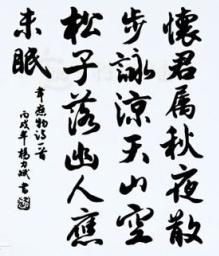 懷君属秋夜散
步詠涼天山空
松子落幽人應
未眠
韋應物詩一首
丙戌年楊力斌書